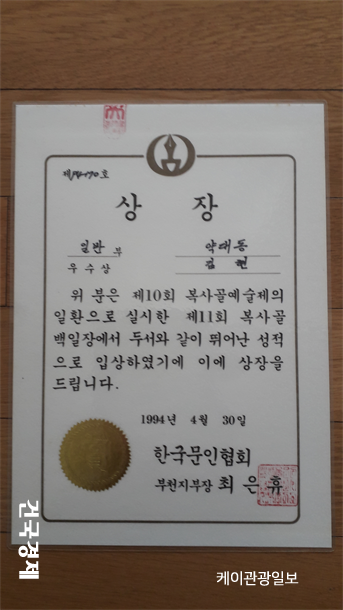 상 장
일반 부
약대동
우수상
김현
위 분은 제10회 복사골예술제의
일환으로 실시한 제11회 복사골
백일장에서 두서와 같이 뛰어난 성적
으로 입상하였기에 이에 상장을
드립니다.
1994년 4월 30일
한국문인협회
부천지부장 최은휴
건국경제
케이관광일보